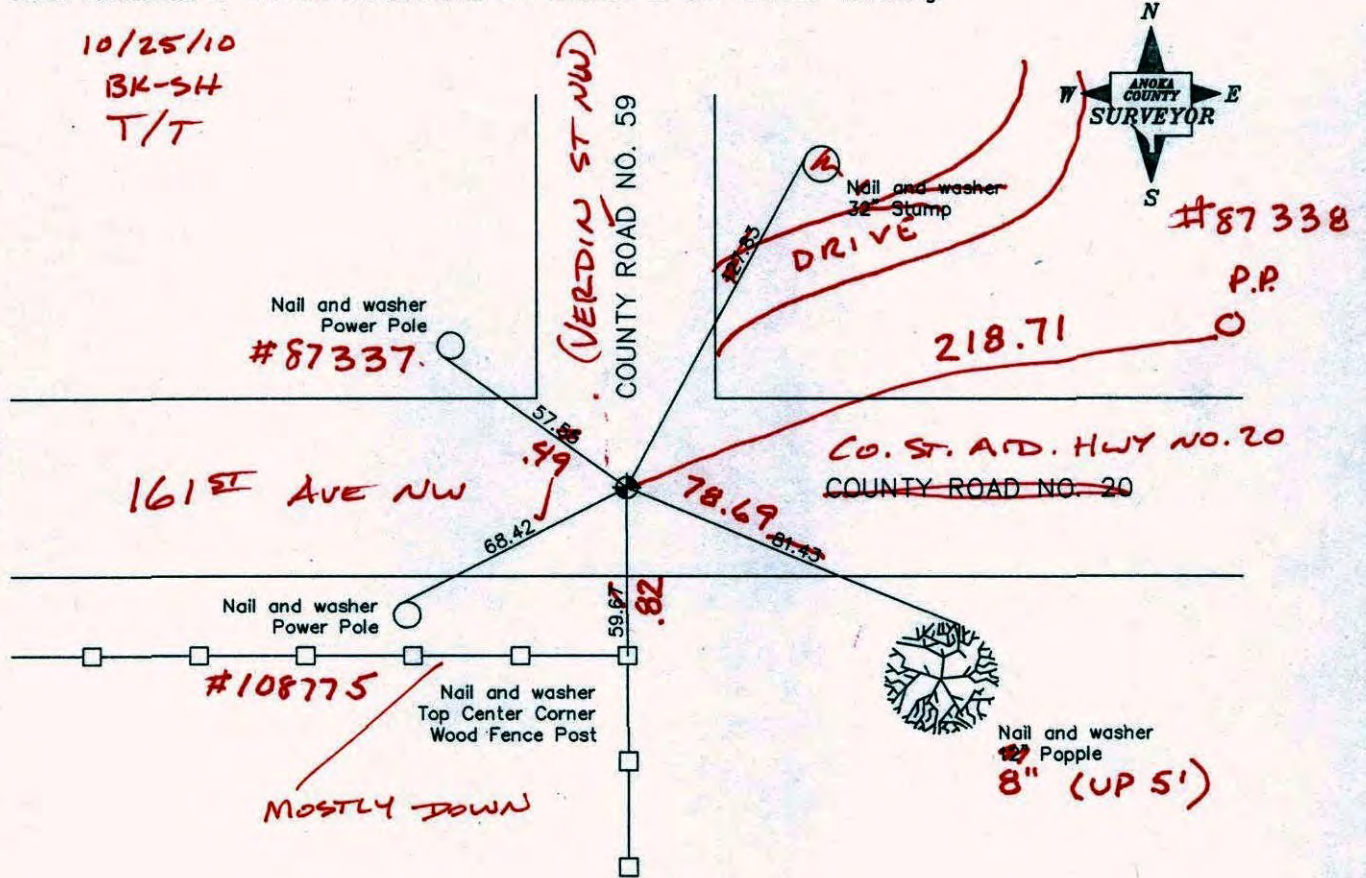 10/25/10
BK-SH
T/T
(VERDIN ST NW)
COUNTY ROAD NO. 59
N
W
E
S
ANOKA
COUNTY
SURVEYOR
Nail and washer
32" Stump
DRIVE
#87338
P.P.
218.71
Nail and washer
Power Pole
#87337
57.
.49
161 ST AVE NW
CO. ST. AID. HWY NO. 20
COUNTY ROAD NO. 20
78.69
81.43
68.42
59.67
.82
Nail and washer
Power Pole
#108775
Nail and washer
Top Center Corner
Wood Fence Post
MOSTLY DOWN
Nail and washer
12" Popple
8" (UP 5')